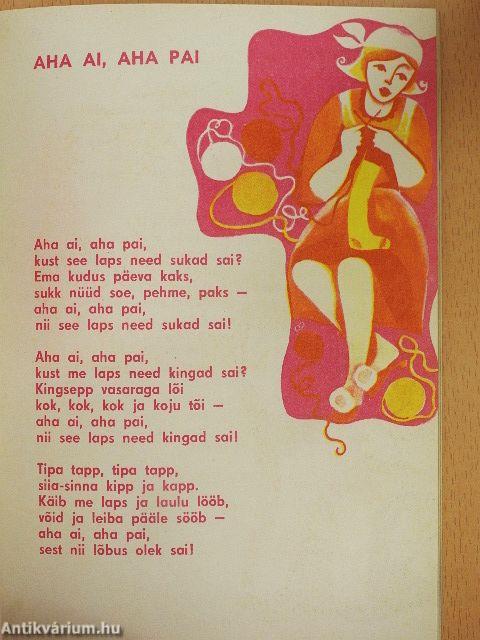 AHA AI, AHA PAI
Aha ai, aha pai,
kust see laps need sukad sai?
Ema kudus päeva kaks,
sukk nüüd soe, pehme, paks —
aha ai, aha pai,
nii see laps need sukad sai!
Aha ai, aha pai,
kust me laps need kingad sai?
Kingsepp vasaraga lõi
kok, kok, kok ja koju tõi —
aha ai, aha pai,
nii see laps need kingad sai!
Tipa tapp, tipa tapp,
siia-sinna kipp ja kapp.
Käib me laps ja laulu lööb,
võid ja leiba pääle sööb —
aha ai, aha pai,
sest nii lõbus olek sai!
Antikvárium.hu